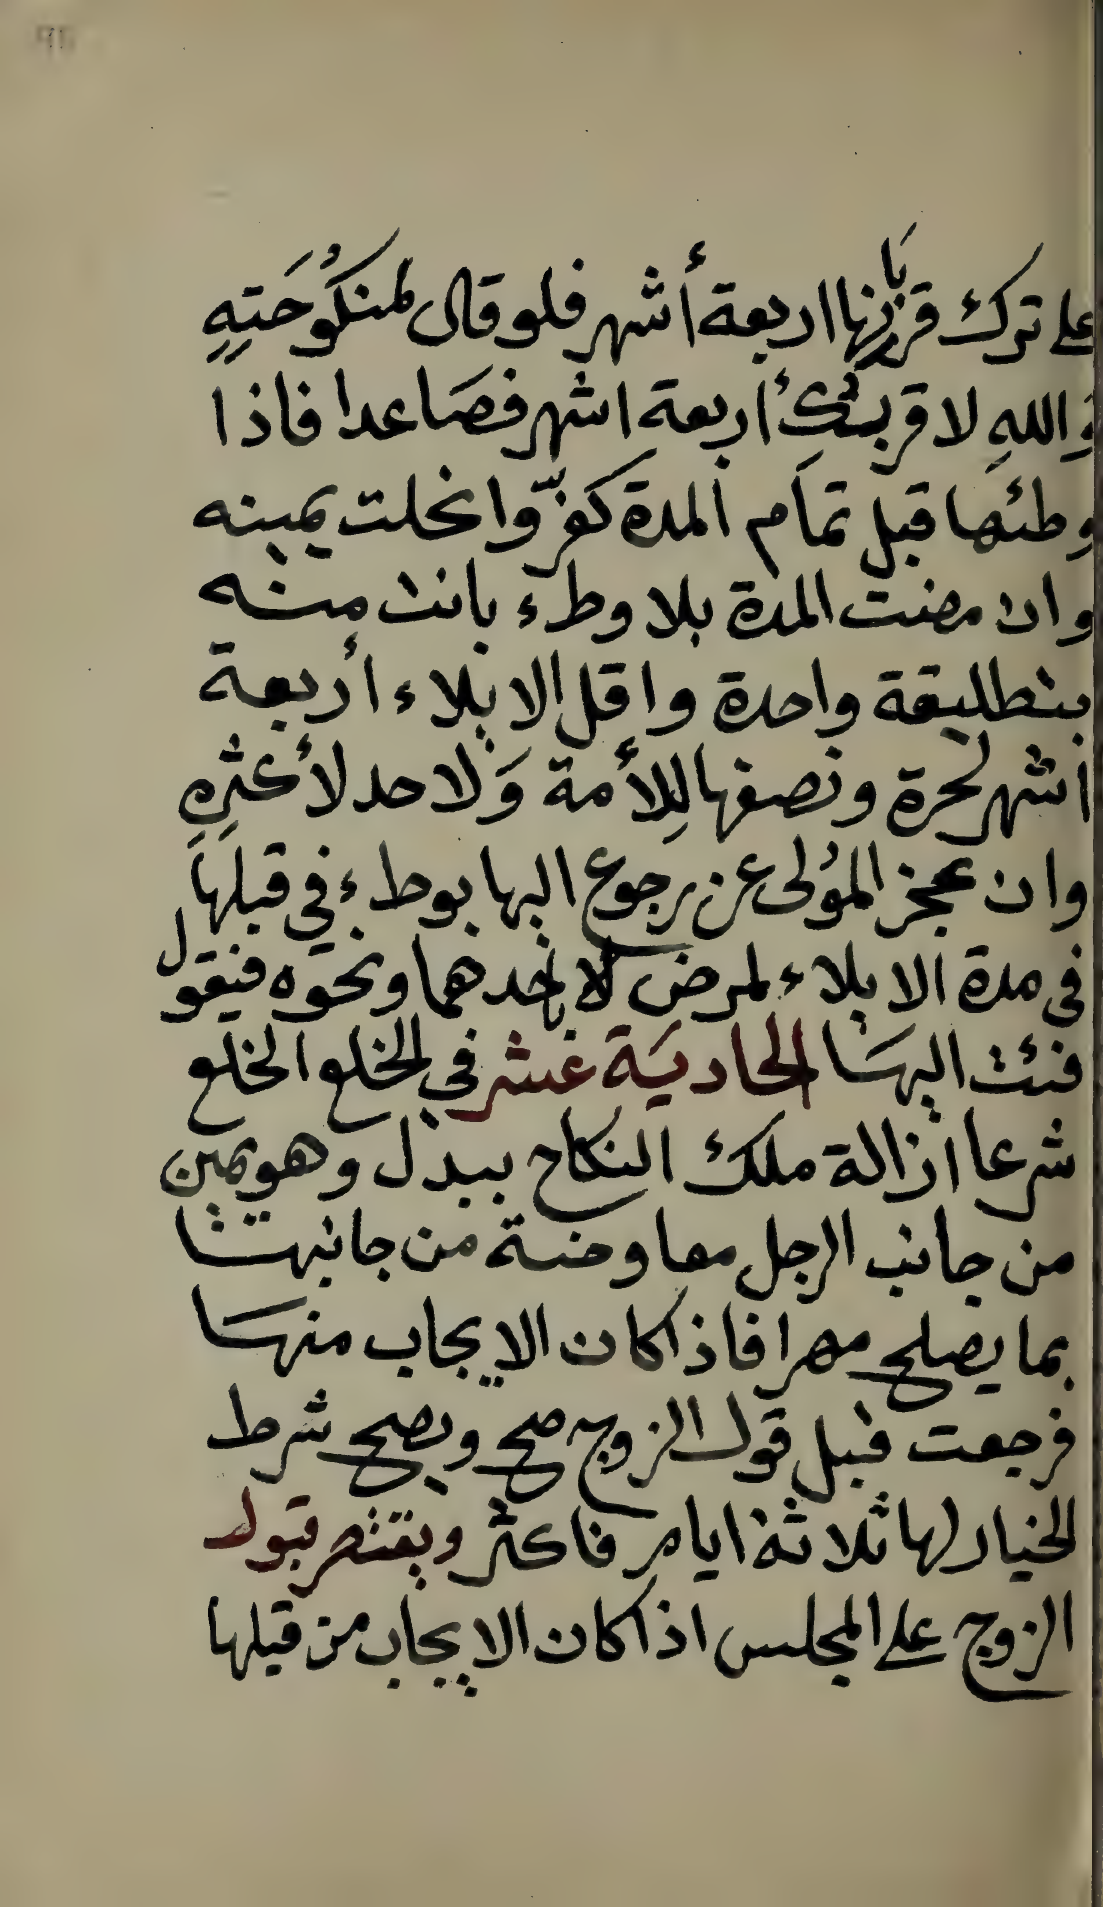 على ترك قربانها اربعة أشهر فلو قال لمنكُوحَتِهِ
وَاللهِ لا قربتُكِ أربعة اشهر فصَاعدا فاذا
وطئها قبل تمام المدة كفّر وانحلت يمينه
وان مضت المدة بلا وطء بانت منه
بتطليقة واحدة واقل الايلاء أربعة
أشهر لحرة ونصفها لِلأمة وَلا حد لأكثرِهِ
وان عجز المؤلى عن رجوع اليها بوطء في قبلها
في مدة الايلاء لمرض لاحدهما ونحوه فيقول
فئت اليهَا الحاديَة عشر في الخلع الخلع
شرعا ازالة ملك النكاح ببدل وهو يمين
من جانب الرجل معاوضة من جانبها
بما يصلح مهرا فاذا كان الايجاب منهَا
فرجعت قبل قول الزوج صح ويصح شرط
الخيار لها ثلاثة ايام فاكثر ويقتصر قبول
الزوج على المجلس اذا كان الايجاب من قبلها